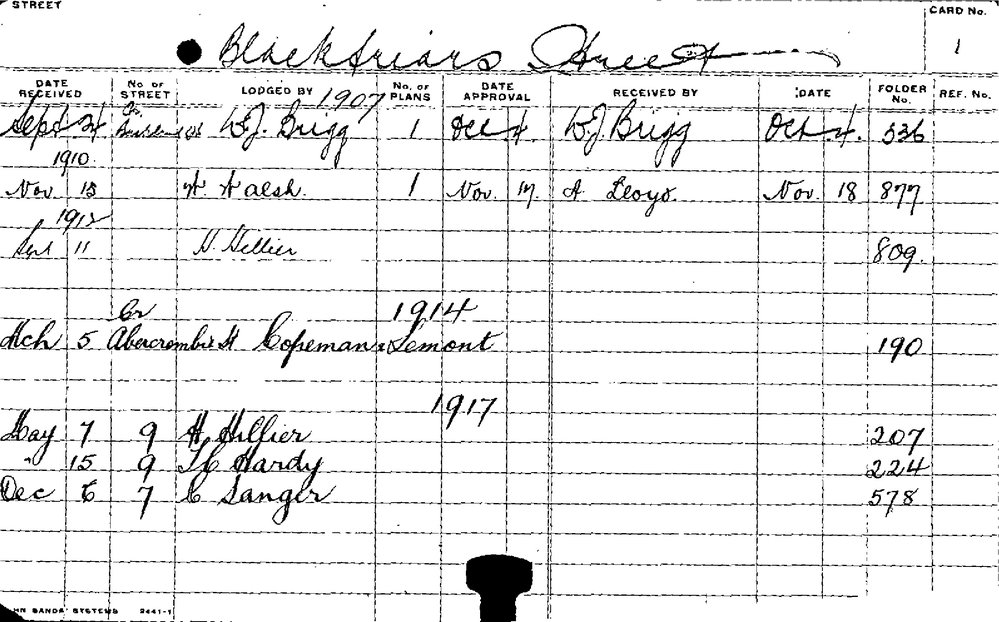 STREET
CARD No.
Blackfriars Street
1
DATE RECEIVED No. OF STREET LODGED BY No. OF PLANS DATE APPROVAL RECEIVED BY DATE FOLDER No. REF. No.
1907
Cr
Sept 24 W.J. Brigg 1 Oct 4 W.J. Brigg Oct 4. 536
1910
Nov. 15 H. Walsh. 1 Nov. 17. A. Lloyd. Nov. 18 877
1912
Sept 11 H. Hellier 809.
Cr 1914
Mch 5 Abercrombie St Copeman & Lemont 190
1917
May 7 9 H Hillier 207
" 15 9 Hardy 224
Dec 6 7 C Sanger 578
SANDS SYSTEMS 2441-1